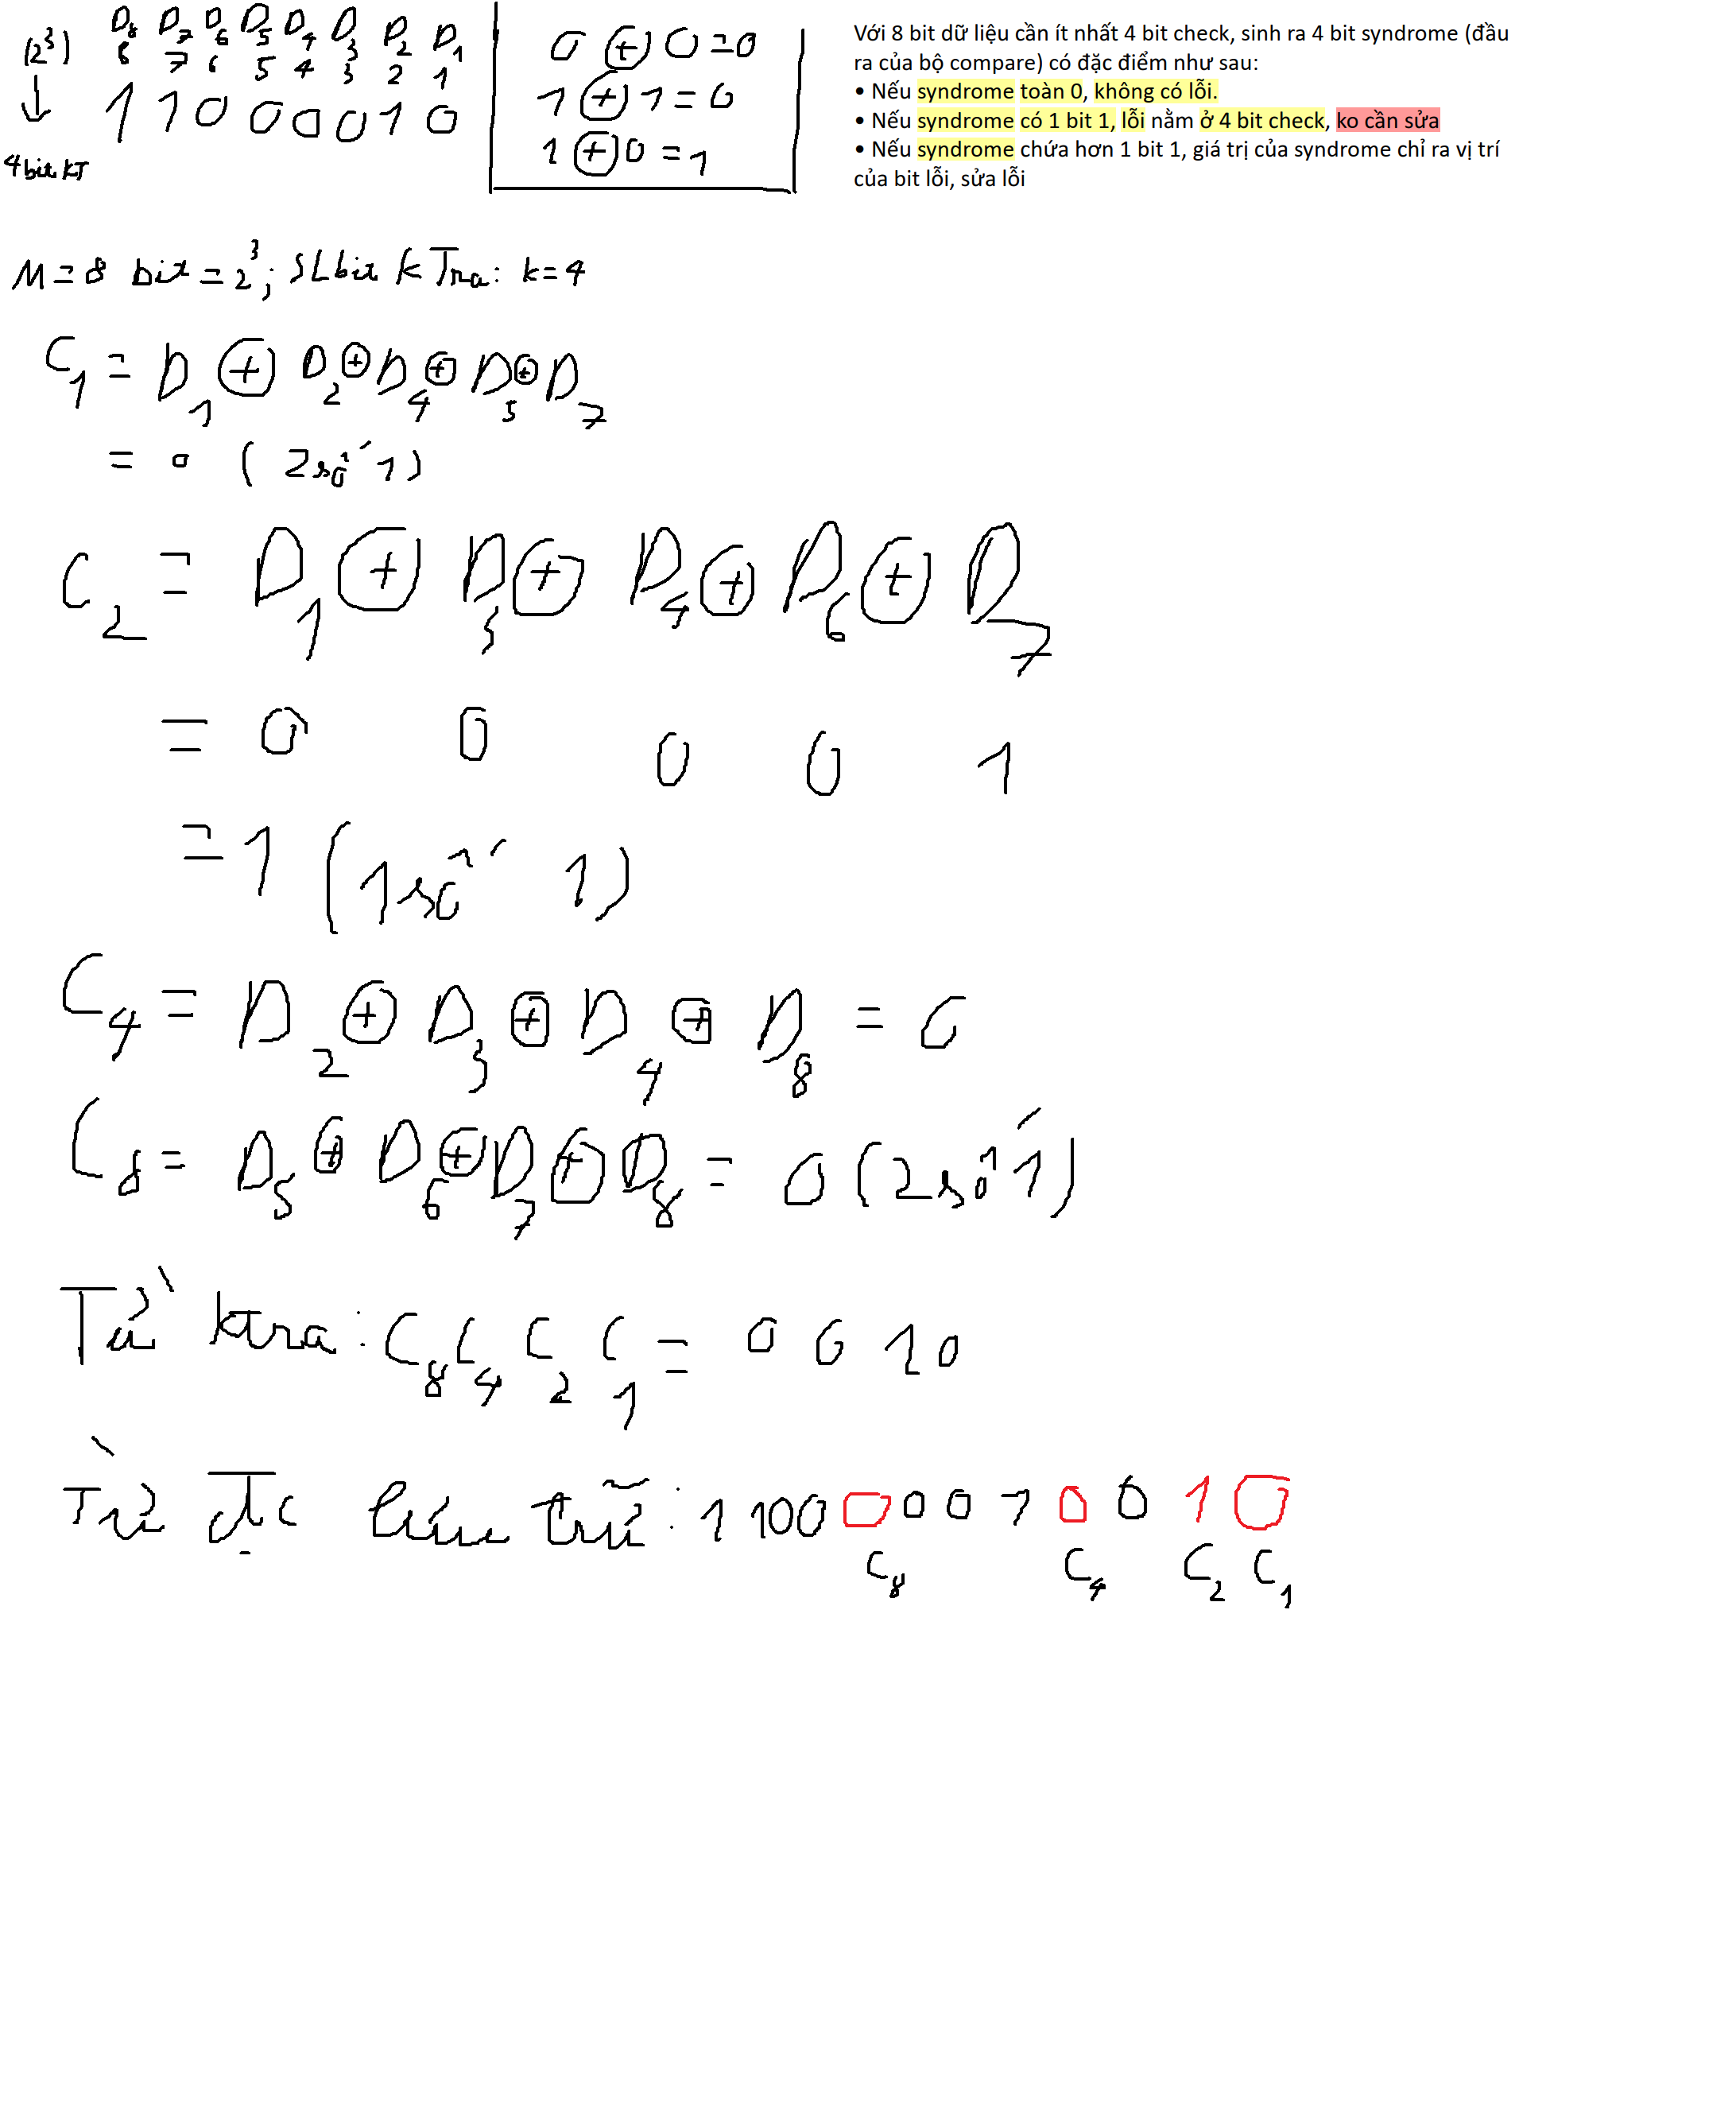 (2³) D₈ D₇ D₆ D₅ D₄ D₃ D₂ D₁
8 7 6 5 4 3 2 1
↓ 1 1 0 0 0 0 1 0
4 bit KT
0 ⊕ 0 = 0
1 ⊕ 1 = 0
1 ⊕ 0 = 1
Với 8 bit dữ liệu cần ít nhất 4 bit check, sinh ra 4 bit syndrome (đầu
ra của bộ compare) có đặc điểm như sau:
• Nếu syndrome toàn 0, không có lỗi.
• Nếu syndrome có 1 bit 1, lỗi nằm ở 4 bit check, ko cần sửa
• Nếu syndrome chứa hơn 1 bit 1, giá trị của syndrome chỉ ra vị trí
của bit lỗi, sửa lỗi
M = 8 bit = 2³; SL bit kTra: k = 4
C₁ = D₁ ⊕ D₂ ⊕ D₄ ⊕ D₅ ⊕ D₇
= 0 (2 số 1)
C₂ = D₁ ⊕ D₃ ⊕ D₄ ⊕ D₆ ⊕ D₇
= 0 0 0 0 1
= 1 (1 số 1)
C₄ = D₂ ⊕ D₃ ⊕ D₄ ⊕ D₈ = 0
C₈ = D₅ ⊕ D₆ ⊕ D₇ ⊕ D₈ = 0 (2 số 1)
Từ ktra: C₈ C₄ C₂ C₁ = 0 0 1 0
Từ đc lưu trữ: 1 100 0 0 0 1 0 0 1 0
C₈ C₄ C₂ C₁